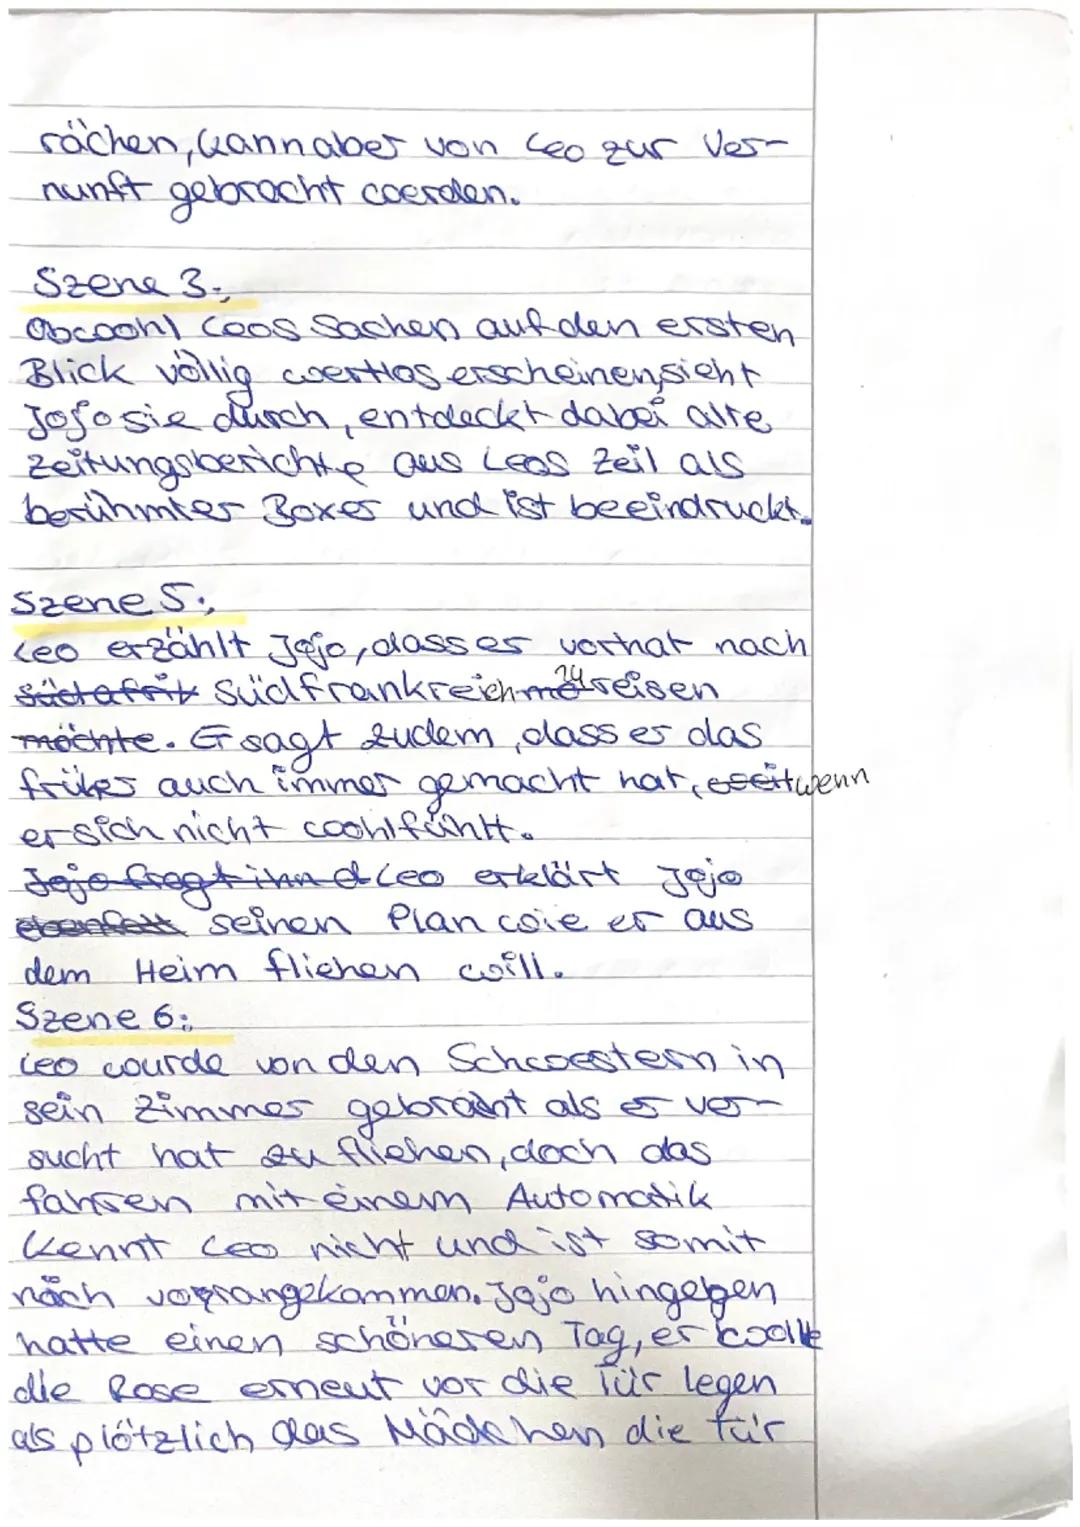 rächen, kann aber von Leo zur Ver-
nunft gebracht werden.
Szene 3:
Obwohl Leos Sachen auf den ersten
Blick völlig wertlos erscheinen, sieht
Jojo sie durch, entdeckt dabei alte
Zeitungsberichte aus Leos Zeil als
berühmter Boxer und ist beeindruckt.
Szene 5:
Leo erzählt Jojo, dass er vorhat nach
Südafrik Südfrankreich zu reisen
möchte. Er sagt zudem, dass er das
früher auch immer gemacht hat, wenn
er sich nicht wohlfühlt.
Jojo fragt ihn d Leo erklärt Jojo
ebenfall seinen Plan wie er aus
dem Heim fliehen will.
Szene 6:
Leo wurde von den Schwestern in
sein Zimmer gebracht als er ver-
sucht hat zu fliehen, doch das
fahren mit einem Automatik
kennt Leo nicht und ist somit
nach vorrangekommen. Jojo hingegen
hatte einen schöneren Tag, er wollte
die Rose erneut vor die Tür legen
als plötzlich das Mädchen die Tür